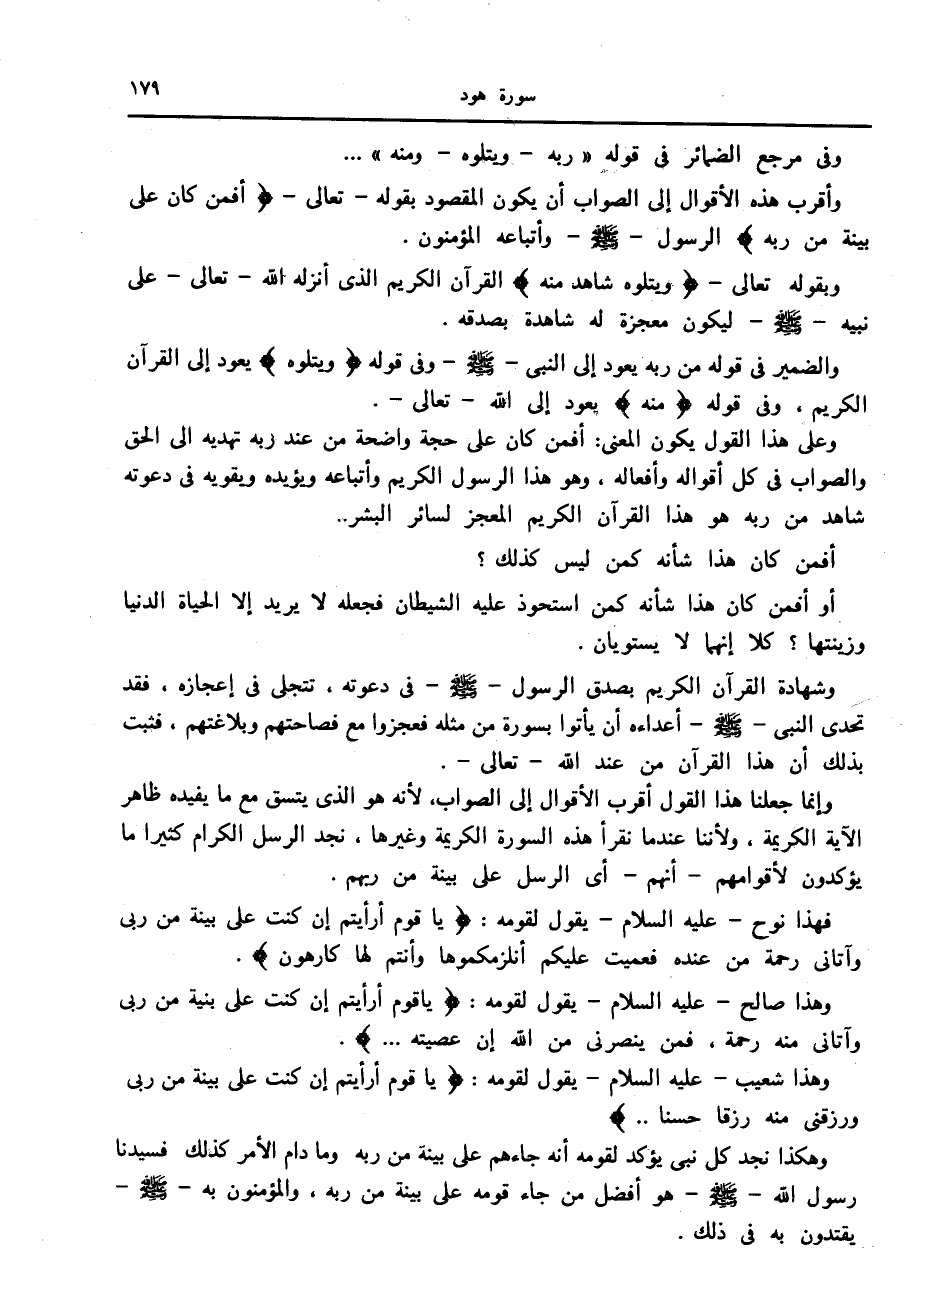 سورة هود
١٧٩
وفى مرجع الضمائر فى قوله « ربه – ويتلوه – ومنه » ...
وأقرب هذه الأقوال إلى الصواب أن يكون المقصود بقوله – تعالى – ﴿ أفمن كان على
بينة من ربه ﴾ الرسول – ﷺ – وأتباعه المؤمنون .
وبقوله تعالى – ﴿ ويتلوه شاهد منه ﴾ القرآن الكريم الذى أنزله الله – تعالى – على
نبيه – ﷺ – ليكون معجزة له شاهدة بصدقه .
والضمير فى قوله من ربه يعود إلى النبى – ﷺ – وفى قوله ﴿ ويتلوه ﴾ يعود إلى القرآن
الكريم ، وفى قوله ﴿ منه ﴾ يعود إلى الله – تعالى – .
وعلى هذا القول يكون المعنى: أفمن كان على حجة واضحة من عند ربه تهديه الى الحق
والصواب فى كل أقواله وأفعاله ، وهو هذا الرسول الكريم وأتباعه ويؤيده ويقويه فى دعوته
شاهد من ربه هو هذا القرآن الكريم المعجز لسائر البشر..
أفمن كان هذا شأنه كمن ليس كذلك ؟
أو أفمن كان هذا شأنه كمن استحوذ عليه الشيطان فجعله لا يريد إلا الحياة الدنيا
وزينتها ؟ كلا إنهما لا يستويان .
وشهادة القرآن الكريم بصدق الرسول – ﷺ – فى دعوته ، تتجلى فى إعجازه ، فقد
تحدى النبى – ﷺ – أعداءه أن يأتوا بسورة من مثله فعجزوا مع فصاحتهم وبلاغتهم ، فثبت
بذلك أن هذا القرآن من عند الله – تعالى – .
وإنما جعلنا هذا القول أقرب الأقوال إلى الصواب، لأنه هو الذى يتسق مع ما يفيده ظاهر
الآية الكريمة ، ولأننا عندما نقرأ هذه السورة الكريمة وغيرها ، نجد الرسل الكرام كثيرا ما
يؤكدون لأقوامهم – أنهم – أى الرسل على بينة من ربهم .
فهذا نوح – عليه السلام – يقول لقومه : ﴿ يا قوم أرأيتم إن كنت على بينة من ربى
وآتانى رحمة من عنده فعميت عليكم أنلزمكموها وأنتم لها كارهون ﴾ .
وهذا صالح – عليه السلام – يقول لقومه : ﴿ ياقوم أرأيتم إن كنت على بنية من ربى
وآتانى منه رحمة ، فمن ينصرنى من الله إن عصيته ... ﴾ .
وهذا شعيب – عليه السلام – يقول لقومه : ﴿ يا قوم أرأيتم إن كنت على بينة من ربى
ورزقنى منه رزقا حسنا .. ﴾
وهكذا نجد كل نبى يؤكد لقومه أنه جاءهم على بينة من ربه وما دام الأمر كذلك فسيدنا
رسول الله – ﷺ – هو أفضل من جاء قومه على بينة من ربه ، والمؤمنون به – ﷺ –
يقتدون به فى ذلك .